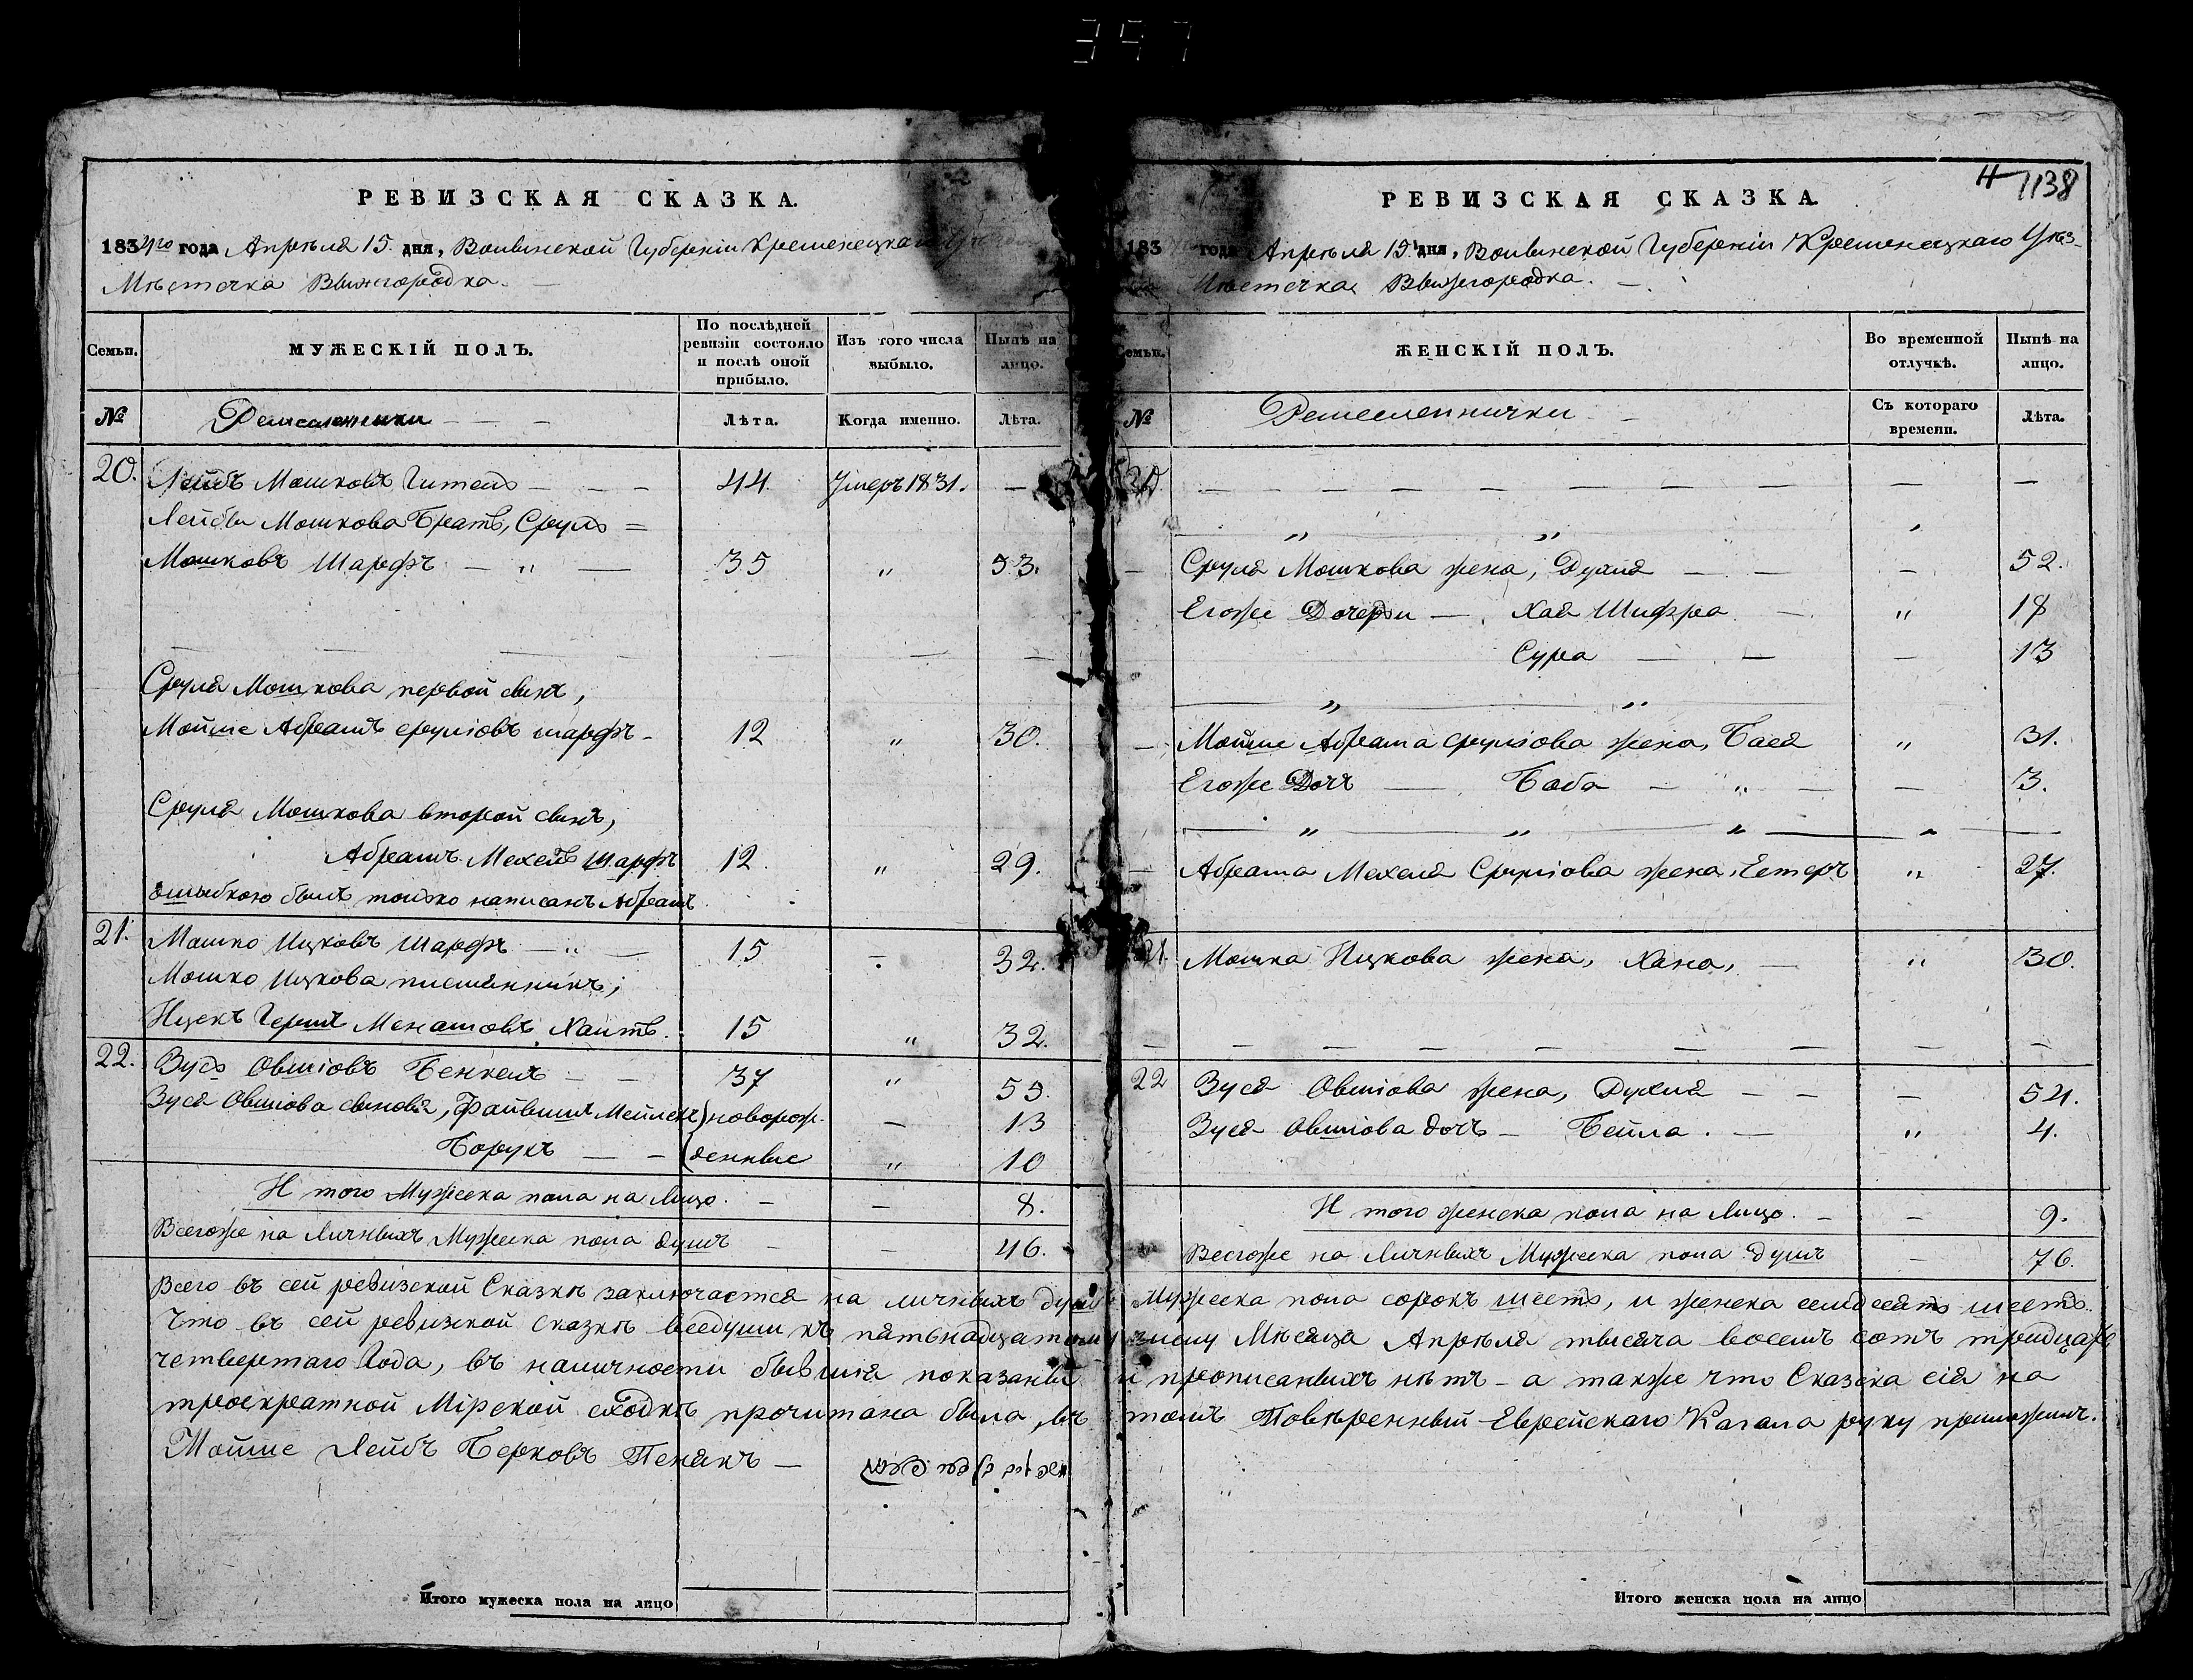 397
РЕВИЗСКАЯ СКАЗКА.
1834го года Апрѣля 15 дня, Волынской Губерніи Кременецкаго
Мѣстечка Вышгородка.
Семьи.
МУЖЕСКІЙ ПОЛЪ.
По послѣдней ревизіи состояло и послѣ оной прибыло.
Изъ того числа выбыло.
Нынѣ на лицо.
№
Ремесленники
Лѣта.
Когда именно.
Лѣта.
20. Лейбъ Мошковъ Гитель — — — 44 Умеръ 1831. —
Лейбы Мошкова Братъ, Сруль =
Мошковъ Шарфъ — " — 35 " 53.
Сруля Мошкова первой сынъ,
Мойше Абрамъ срулiовъ шарфъ - 12 " 30.
Сруля Мошкова второй сынъ,
Абрамъ Мехель Шарфъ 12. " 29.
ошыбкою былъ только написанъ Абрамъ
21. Мошко Ицковъ Шарфъ — " — 15 - 32.
Мошко Ицкова племянникъ,
Ицекъ Гершъ Менашовъ Хаитъ. 15 " 32.
22. Зусь Овшіовъ Бенкель — — 37 " 55.
Зуся Овшіова сыновья, Файвишъ Мейлехъ) новорож- — 13
Борухъ — — (денные " 10
И того Мужеска пола на Лицо. — — 8.
Всегоже на Личныхъ Мужеска пола душъ — — 46.
Всего въ сей ревизской Сказкѣ заключается на личныхъ душъ
Что въ сей ревизской сказкѣ всѣ души къ пятьнадцатому
четвертаго Года, въ наличности бывшія показаны
троекратной Мірской сходкѣ прочитана была, въ
Мойше Лейбъ Берковъ Пенякъ —
РЕВИЗСКАЯ СКАЗКА.
1138
183 года Апрѣля 15 дня, Волынской Губерніи Кременецкаго Уѣз-
да Мѣстечка Вышгородка. —
Семьи.
ЖЕНСКІЙ ПОЛЪ.
Во временной отлучкѣ.
Нынѣ на лицо.
№
Ремесленнички
Съ котораго времени.
Лѣта.
20. — — — — — — — — — —
— Сруля Мошкова жена, Духня — — — 52.
Егоже Дочери — Хая Шифра — " 18
Сура — — — 13
— Мойше Абрама срулiова жена, Бася " 31.
Егоже Дочь — Баба — " — — 3.
— Абрама Мехеля Срулiова жена, Етеръ " 27.
21. Мошка Ицкова жена, Хана, — " 30.
— — — — — — — — —
22 Зуся Овшіова жена, Духня — — — 54.
Зуся Овшіова дочь — Бейла. — " 4.
И того женска пола на Лицо. — — 9.
Всегоже на Личныхъ Мужеска пола душъ — 76.
Мужеска пола сорокъ шесть, и женска семдесятъ шесть.
числу Мѣсяца Апрѣля тысяча восемъ сотъ тридцать
и прописанныхъ нѣтъ - а также что Сказка сія на
томъ Повѣренный Еврейскаго Кагала руку приложилъ.
Итого мужеска пола на лицо
Итого женска пола на лицо